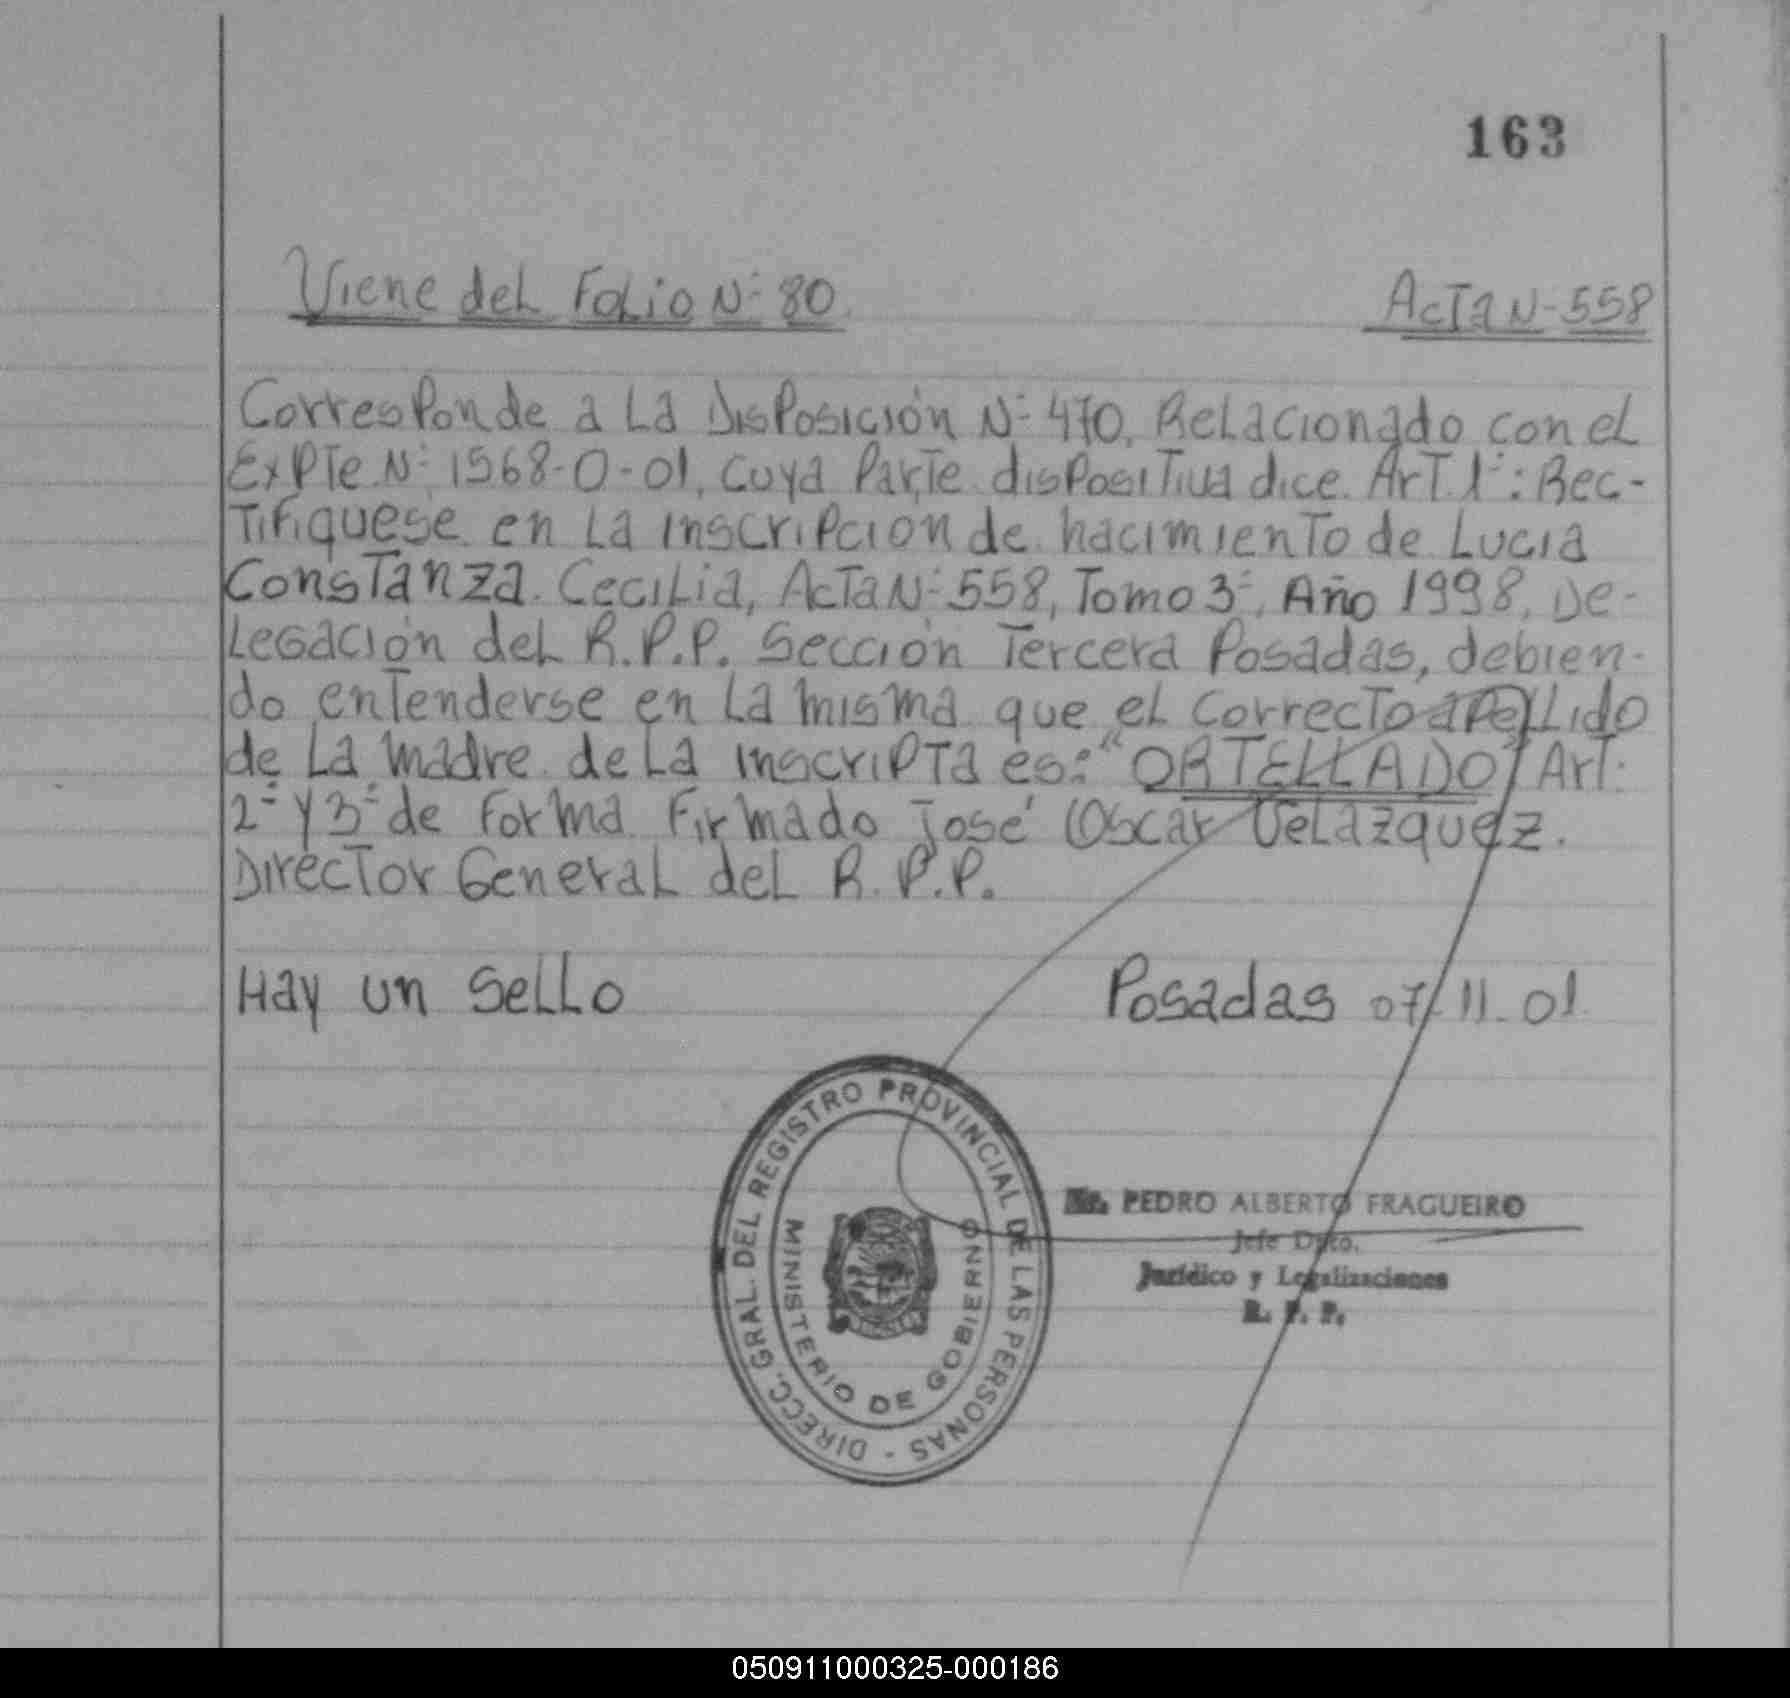 163
Viene del Folio Nº 80. Acta Nº 558
Corresponde a La Disposición Nº 470, Relacionado con el
Expte. Nº 1568-0-01, cuya Parte dispositiva dice. Art. 1º: Rec-
tifiquese en La inscripcion de nacimiento de Lucia
Constanza Cecilia, Acta Nº 558, Tomo 3º, Año 1998, De-
legación del R.P.P. Sección Tercera Posadas, debien-
do entenderse en La misma que el correcto apellido
de La madre de La inscripta es: "ORTELLADO" Art.
2º y 3º de forma Firmado José Oscar Velazquez.
Director General del R.P.P.
Hay un sello Posadas 07-11-01
DIRECC. GRAL. DEL REGISTRO PROVINCIAL DE LAS PERSONAS -
MINISTERIO DE GOBIERNO
PEDRO ALBERTO FRAGUEIRO
Jefe Dpto.
Jurídico y Legalizaciones
R. P. P.
050911000325-000186